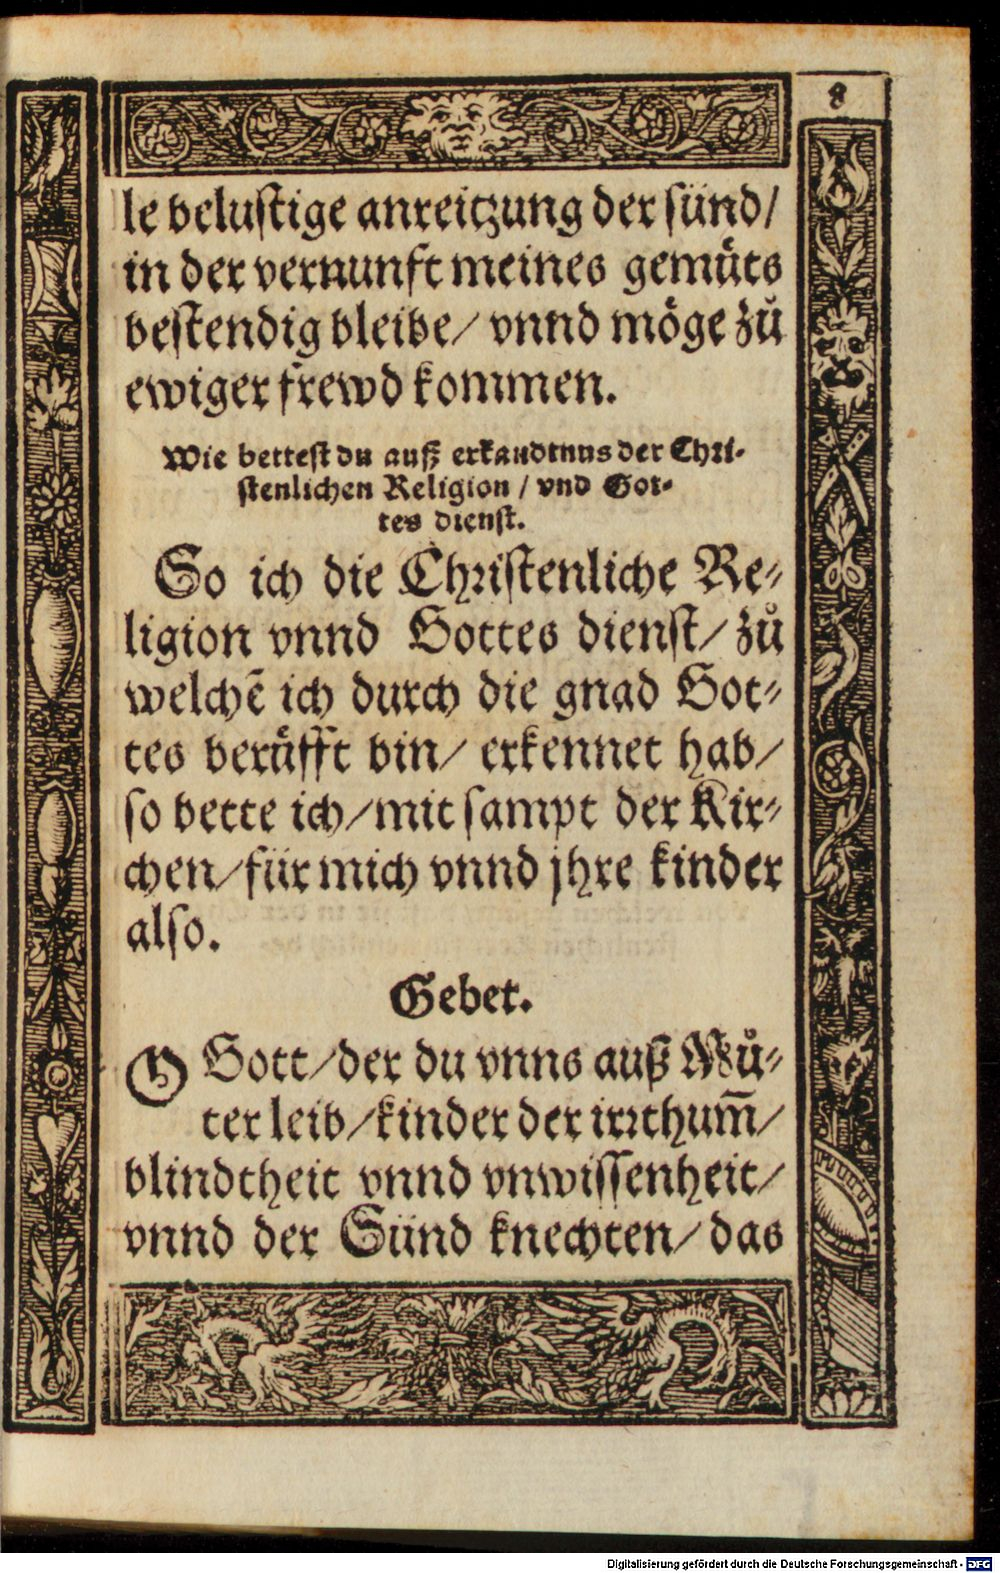 8
le belustige anreitzung der sünd/
in der vernunft meines gemüts
bestendig bleibe/ vnnd möge zů
ewiger frewd kommen.
Wie bettest du auß erkandtnus der Chri-
stenlichen Religion / vnd Got-
tes dienst.
So ich die Christenliche Re-
ligion vnnd Gottes dienst/ zů
welchē ich durch die gnad Got-
tes berüfft bin/ erkennet hab/
so bette ich/ mit sampt der Kir-
chen/ für mich vnnd jhre kinder
also.
Gebet.
O Gott/ der du vnns auß Můter-
ter leib/ kinder der irrthum̄/
blindtheit vnnd vnwissenheit/
vnnd der Sünd knechten/ das
Digitalisierung gefördert durch die Deutsche Forschungsgemeinschaft - DFG